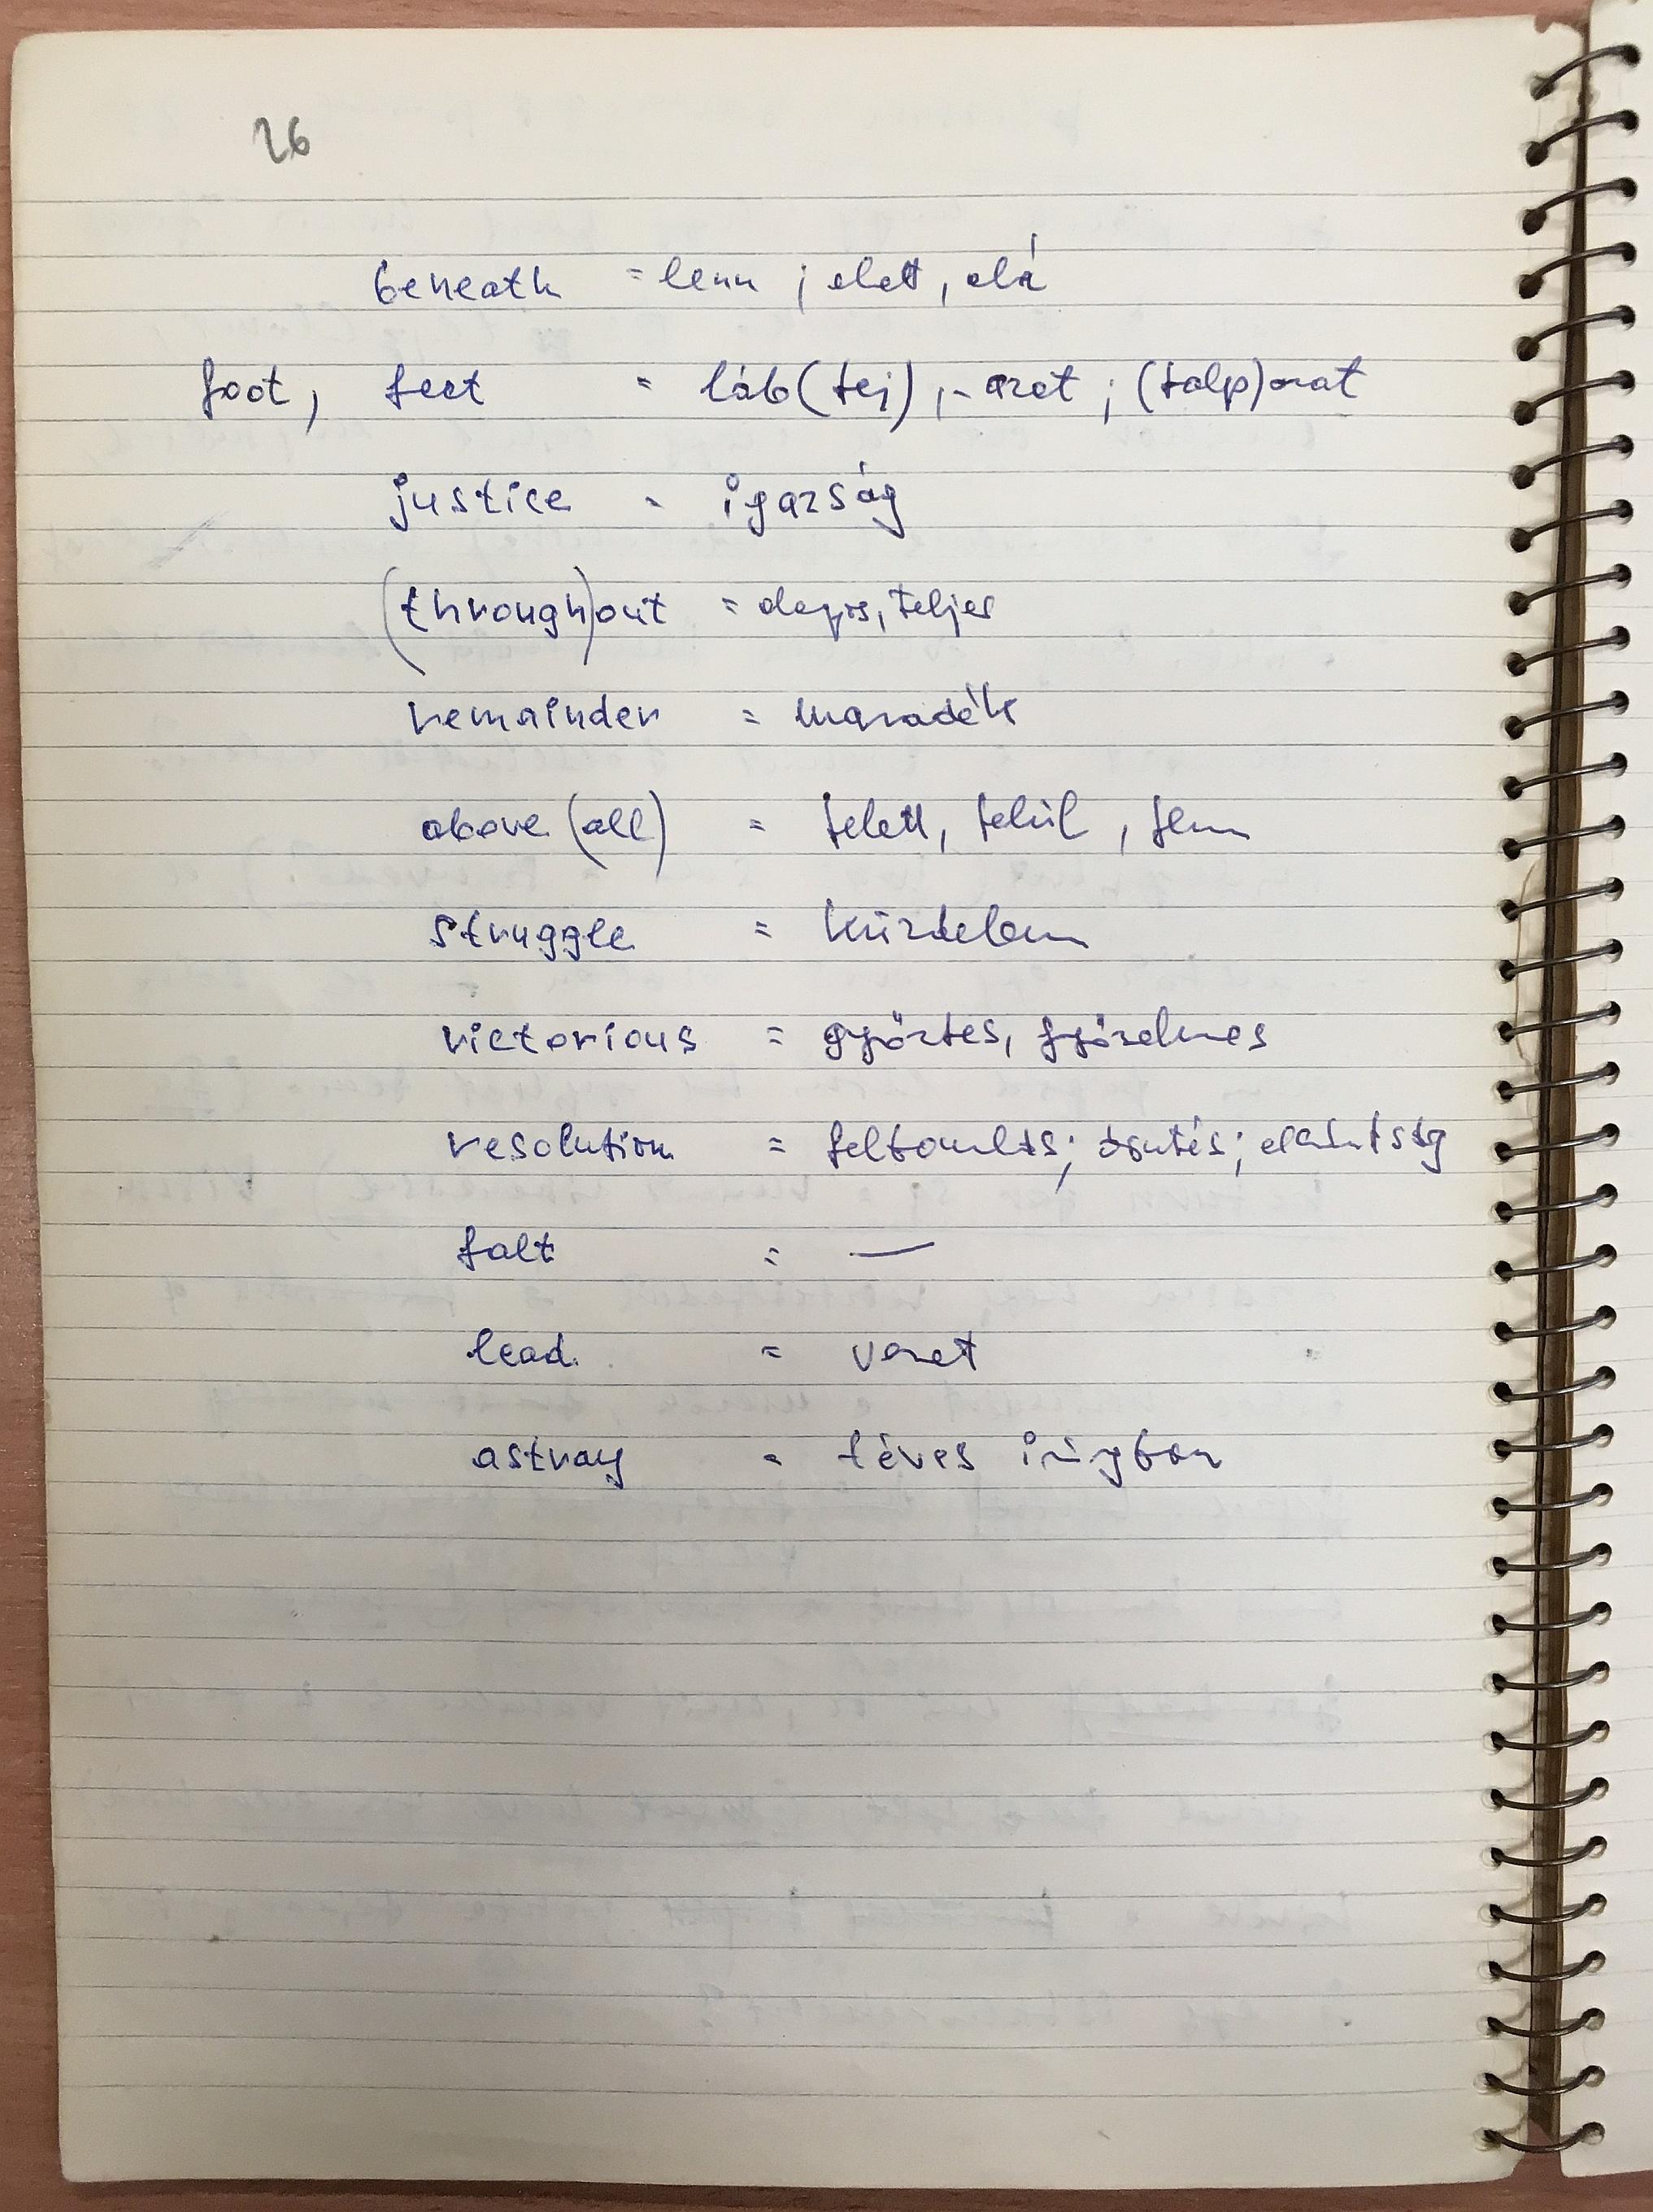 26
beneath = lenn ; alatt, alá
foot, feet = láb(fej), -azat ; (talp)azat
justice = igazság
(through)out = alapos, teljes
remainder = maradék
above (all) = felett, felül, fenn
struggle = küzdelem
victorious = győztes, győzelmes
resolution = feloldás; döntés; elszántság
falt = —
lead = vezet
astray = téves irányban